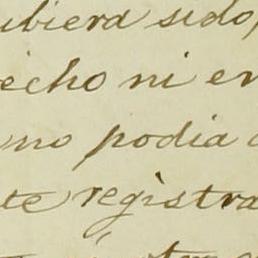 ubiera sido,
echo ni en
no podia
te registra